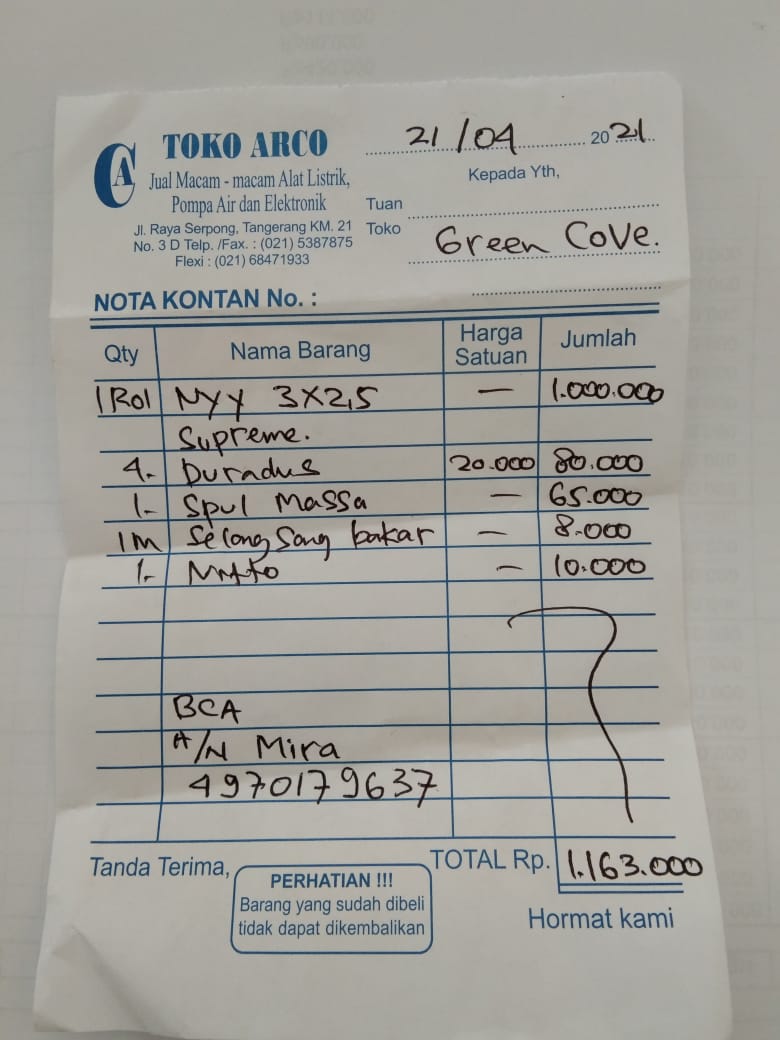 CA
TOKO ARCO
Jual Macam - macam Alat Listrik,
Pompa Air dan Elektronik
Jl. Raya Serpong, Tangerang KM. 21
No. 3 D Telp. /Fax. : (021) 5387875
Flexi : (021) 68471933
21/04 2021
Kepada Yth,
Tuan
Toko Green Cove.
NOTA KONTAN No. :
Qty Nama Barang Harga Satuan Jumlah
1 Rol NYY 3x2,5 — 1.000.000
Supreme.
4.- Duradus 20.000 80.000
1.- Spul Massa — 65.000
1 M Selongsong bakar — 8.000
1.- — 10.000
BCA
A/N Mira
4970179637
TOTAL Rp. 1.163.000
Tanda Terima,
PERHATIAN !!!
Barang yang sudah dibeli
tidak dapat dikembalikan
Hormat kami